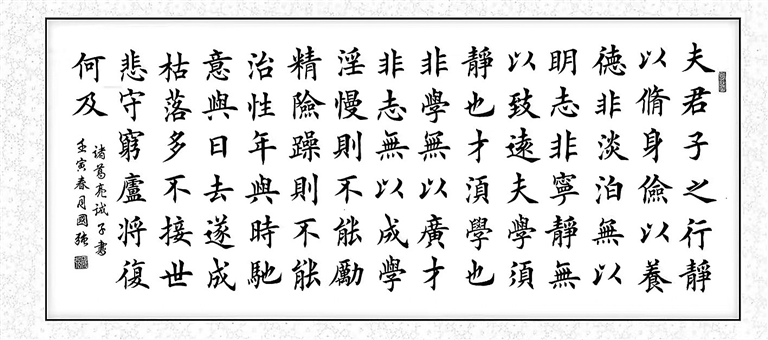 夫君子之行靜
以脩身儉以養
德非淡泊無以
明志非寧靜無
以致遠夫學須
靜也才湏學也
非學無以廣才
非志無以成學
淫慢則不能勵
精險躁則不能
治性年與時馳
意與日去遂成
枯落多不接世
悲守窮廬將復
何及
諸葛亮誡子書
壬寅春月國強